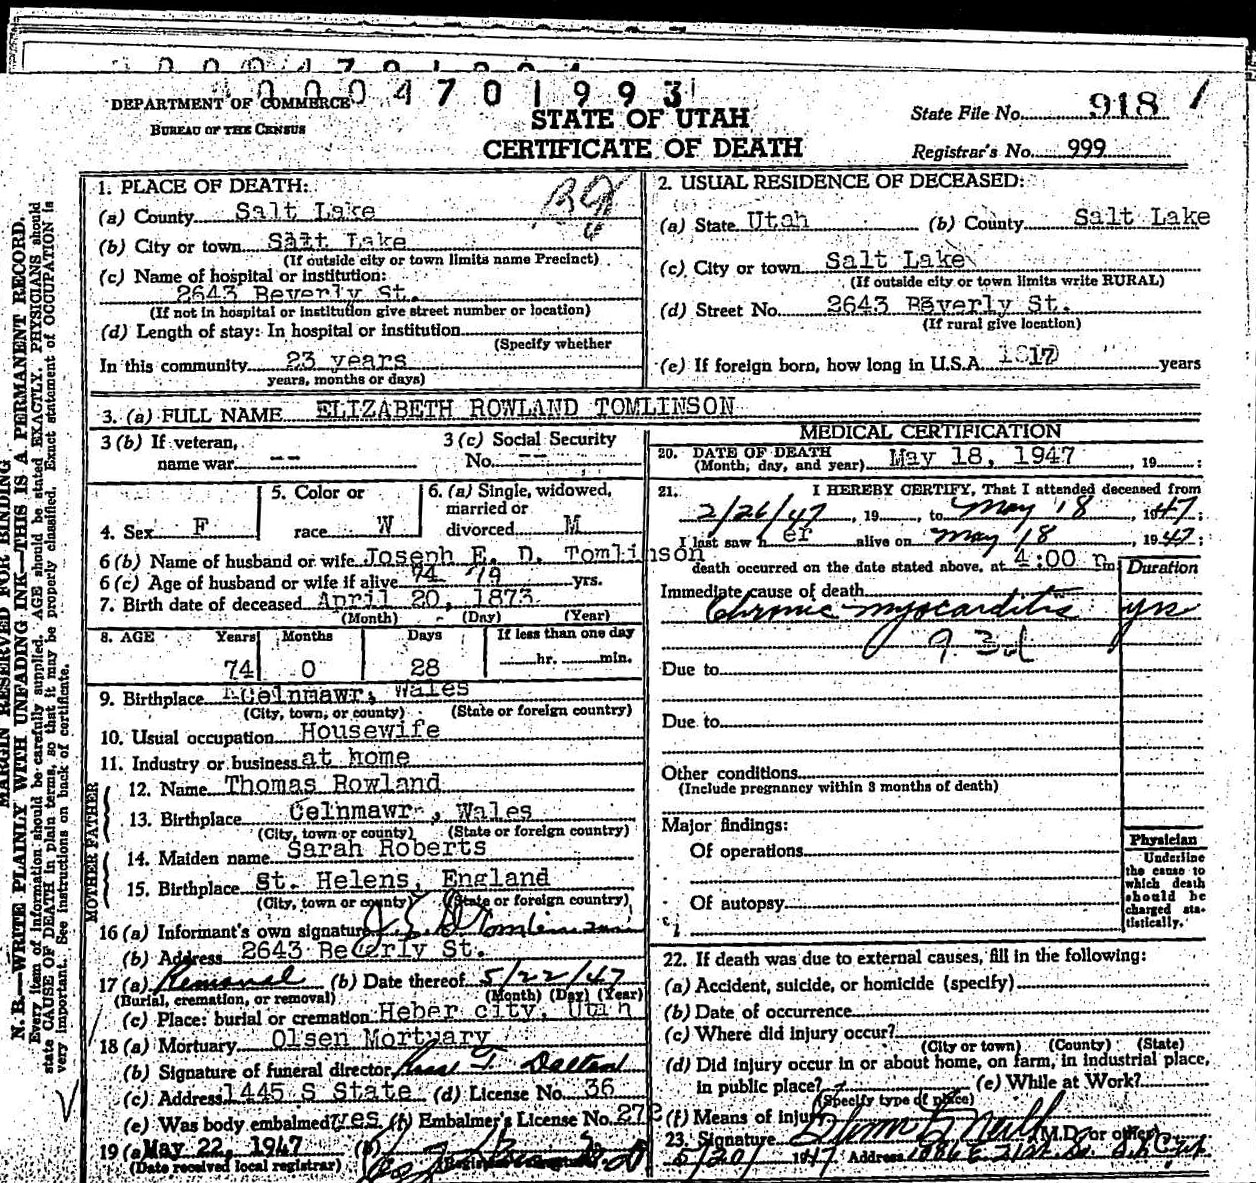 0 0 0 4 7 0 1 9 9 3
DEPARTMENT OF COMMERCE
BUREAU OF THE CENSUS
STATE OF UTAH
CERTIFICATE OF DEATH
State File No. 918
Registrar's No. 999
MARGIN RESERVED FOR BINDING
N. B.—WRITE PLAINLY WITH UNFADING INK—THIS IS A PERMANENT RECORD.
Every item of information should be carefully supplied. AGE should be stated EXACTLY. PHYSICIANS should
state CAUSE OF DEATH in plain terms, so that it may be properly classified. Exact statement of OCCUPATION is
very important. See instructions on back of certificate.
1. PLACE OF DEATH:
(a) County Salt Lake
(b) City or town Salt Lake
(If outside city or town limits name Precinct)
(c) Name of hospital or institution:
2643 Beverly St.
(If not in hospital or institution give street number or location)
(d) Length of stay: In hospital or institution
(Specify whether
In this community 23 years
years, months or days)
2. USUAL RESIDENCE OF DECEASED:
(a) State Utah (b) County Salt Lake
(c) City or town Salt Lake
(If outside city or town limits write RURAL)
(d) Street No. 2643 Beverly St.
(If rural give location)
(e) If foreign born, how long in U.S.A. years
3. (a) FULL NAME ELIZABETH ROWLAND TOMLINSON
3 (b) If veteran,
name war --
3 (c) Social Security
No. --
4. Sex F
5. Color or
race W
6. (a) Single, widowed,
married or
divorced M
6 (b) Name of husband or wife Joseph E. D. Tomlinson
6 (c) Age of husband or wife if alive 74 yrs.
7. Birth date of deceased April 20, 1873
(Month) (Day) (Year)
8. AGE Years Months Days If less than one day
74 0 28 hr. min.
9. Birthplace Wales
(City, town, or county) (State or foreign country)
10. Usual occupation Housewife
11. Industry or business at home
FATHER
12. Name Thomas Rowland
13. Birthplace Celnmawr, Wales
(City, town or county) (State or foreign country)
MOTHER
14. Maiden name Sarah Roberts
15. Birthplace St. Helens, England
(City, town or county) (State or foreign country)
16 (a) Informant's own signature J. E. D. Tomlinson
(b) Address 2643 Beverly St.
17 (a) Removal (b) Date thereof 5/22/47
(Burial, cremation, or removal) (Month) (Day) (Year)
(c) Place: burial or cremation Heber city, Utah
18 (a) Mortuary Olsen Mortuary
(b) Signature of funeral director
(c) Address 1445 S State (d) License No. 36
(e) Was body embalmed? yes (f) Embalmer's License No. 272
19 (a) May 22, 1947 (b)
(Date received local registrar)
MEDICAL CERTIFICATION
20. DATE OF DEATH
(Month, day, and year) May 18, 1947, 19 :
21. I HEREBY CERTIFY, That I attended deceased from
2/26/47, 19 , to May 18, 1947;
I last saw her alive on May 18, 1947;
death occurred on the date stated above, at 4:00
Duration
Immediate cause of death
Chronic myocarditis yrs
93d
Due to
Due to
Other conditions
(Include pregnancy within 3 months of death)
Major findings:
Of operations
Of autopsy
Physician
Underline
the cause to
which death
should be
charged sta-
tistically.
22. If death was due to external causes, fill in the following:
(a) Accident, suicide, or homicide (specify)
(b) Date of occurrence
(c) Where did injury occur?
(City or town) (County) (State)
(d) Did injury occur in or about home, on farm, in industrial place,
in public place? (e) While at Work?
(Specify type of place)
(f) Means of injury
23. Signature M.D. or other
5/20/1947 Address